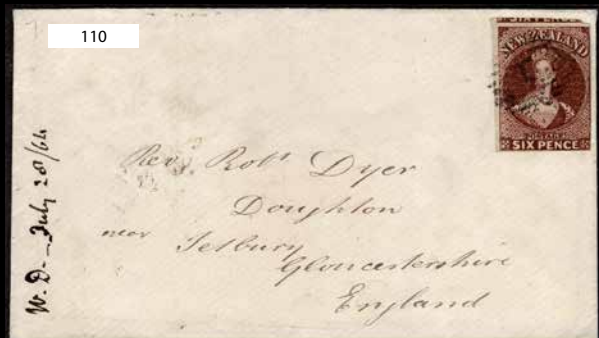 110
SIX PENCE
NEW ZEALAND
POSTAGE
SIX PENCE
W. D. - July 28/64
Rev. Robt Dyer
Doughton
near Tetbury
Gloucestershire
England